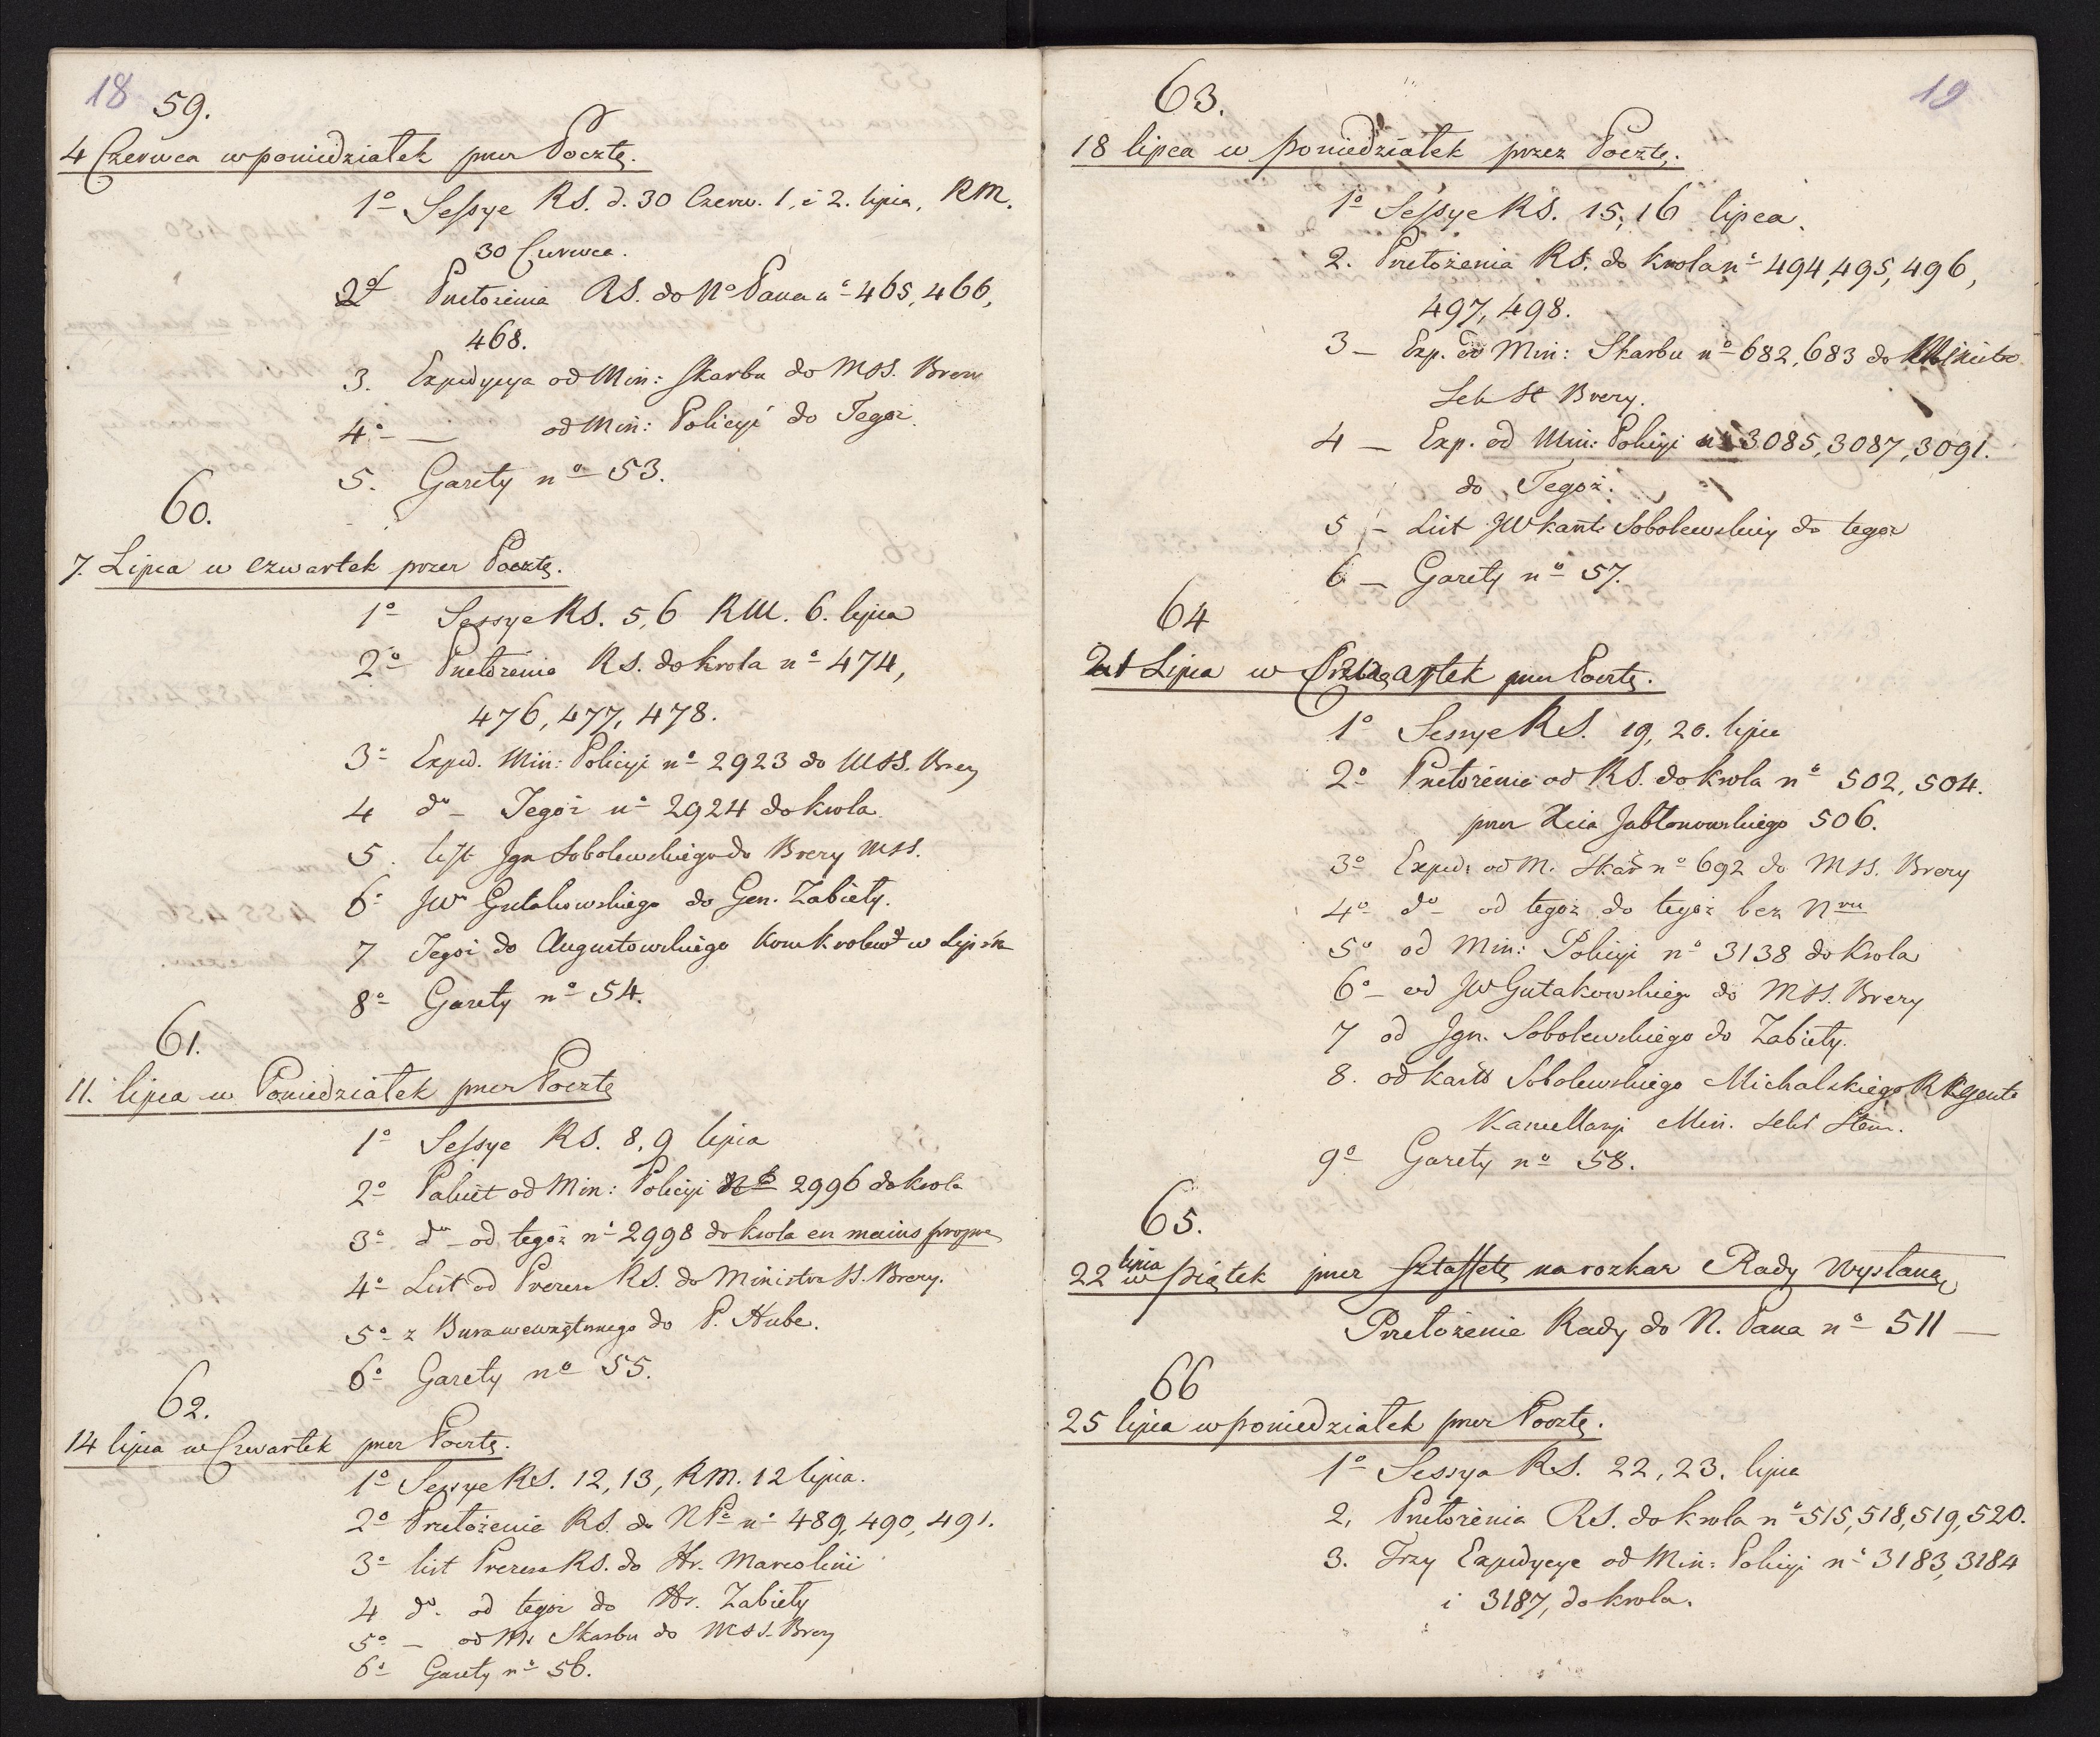 18
59.
4 Czerwca w poniedziałek przez Pocztę.
1º Sessye RS. d. 30 Czerw. 1, i 2. lipca, RM.
30 Czerwca.
2º Przełożenia RS. do Nº Pana nº 465, 466,
468.
3. Expedycya od Min: Skarbu do MSS. Brezy
4º — od Min: Policyi do Tegoż.
5. Gazety nº 53.
60.
7. Lipca w czwartek przez Pocztę.
1º Sessye RS. 5, 6 RM. 6. lipca
2º Przełożenia RS. do Krola nº 474,
476, 477, 478.
3º Exped. Min: Policyi nº 2923 do MSS. Brezy
4 dº – Tegoż nº 2924 do krola
5. list Ign Sobolewskiego do Brezy MSS.
6º JW Gutakowskiego do Gen. Zabiety.
7 Tegoż do Augustowskiego w Lipsku
8º Gazety nº 54.
61.
11. lipca w Poniedziałek przez Pocztę
1º Sessye RS. 8, 9 lipca
2º Pakiet od Min: Policyi Nº 2996 do krola
3º dº – od tegoż nº 2998 do krola en mains propres
4º List od Prezesa RS. do Ministra SS. Brezy.
5º z Biura wewnętrznego do P. Hube.
6º Gazety nº 55.
62.
14 lipca w Czwartek przez Pocztę.
1º Sessye RS. 12, 13, RM. 12 lipca.
2º Przełożenie RS. do N Pª nº 489, 490, 491.
3º list Prezesa RS. do Hr. Marcolini
4 dº. od tegoż do Hr. Zabiety
5º – od Mr Skarbu do MSS. Brezy
6º Gazety nº 56.
19
63.
18 lipca w poniedziałek przez Pocztę.
1º Sessye RS. 15, 16 lipca.
2. Przełożenia RS. do krola nº 494, 495, 496,
497, 498.
3 – Exp. od Min: Skarbu nº 682, 683 do Ministra
Sek St Brezy.
4 – Exp. od Min: Policyi nº 3085, 3087, 3091.
do Tegoż.
5 – List JW Sobolewskiey do tegoż
6 – Gazety nº 57.
64
21 Lipca w Czwartek przez Pocztę.
1º Sessye RS. 19, 20. lipca
2º Przełożenia od RS. do krola nº 502, 504.
przez Xcia Jabłonowskiego 506.
3º Exped. od M. Skar nº 692 do MSS. Brezy
4º dº – od tegoż do tegoż bez Nru
5º od Min: Policyi nº 3138 do Krola
6º – od JW Gutakowskiego do MSS. Brezy
7 od Ign. Sobolewskiego do Zabiety.
8. od Sobolewskiego Michalskiego Regenta
Kancellaryi Min. Sekr Stanu.
9º Gazety nº 58.
65.
22 lipca w piątek przez Sztaffetę na rozkaz Rady wysłaną
Przełożenie Rady do N. Pana nº 511 —
66
25 lipca w poniedziałek przez Pocztę.
1º Sessya RS. 22, 23. lipca
2. Przełożenia RS. do krola nº 515, 518, 519, 520.
3. Trzy Expedycye od Min: Policyi nº 3183, 3184
i 3187, do krola.